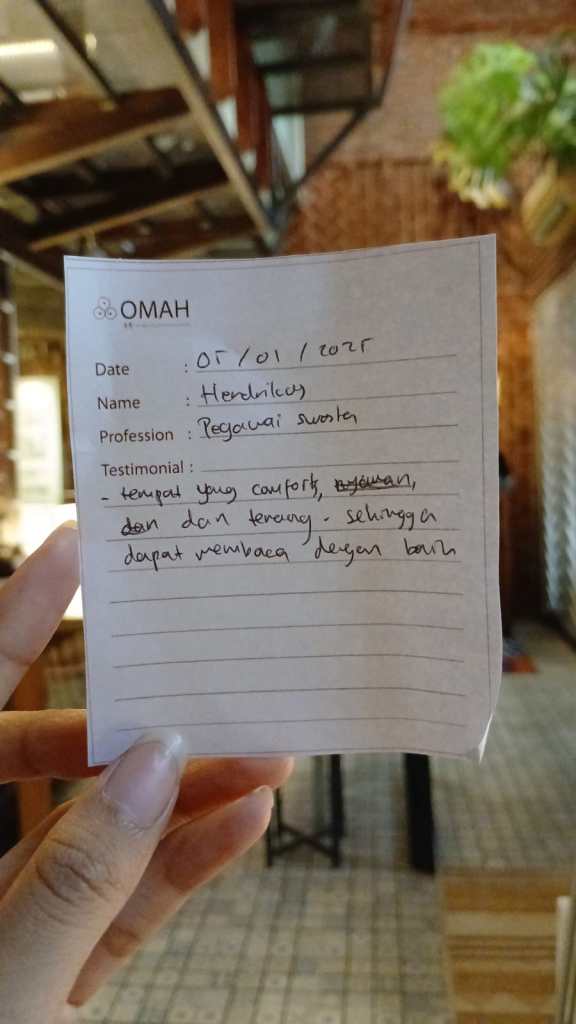 OMAH
Date : 05 / 01 / 2025
Name : Hendrikus
Profession : Pegawai swasta
Testimonial :
- tempat yang comfort, nyaman,
dan dan tenang. sehingga
dapat membaca dengan baik